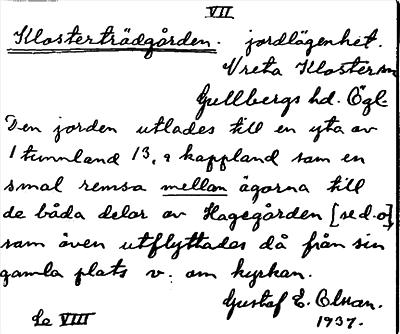 VII
Klosterträdgården. jordlägenhet.
Vreta Kloster sn
Gullbergs hd. Ögl.
Den jorden utlades till en yta av
1 tunnland 13,9 kappland som en
smal remsa mellan ägorna till
de båda delar av Hagegården [se d.o],
som även utflyttades då från sin
gamla plats v. om kyrkan.
Gustaf E. Olsson.
1937.
Se VIII